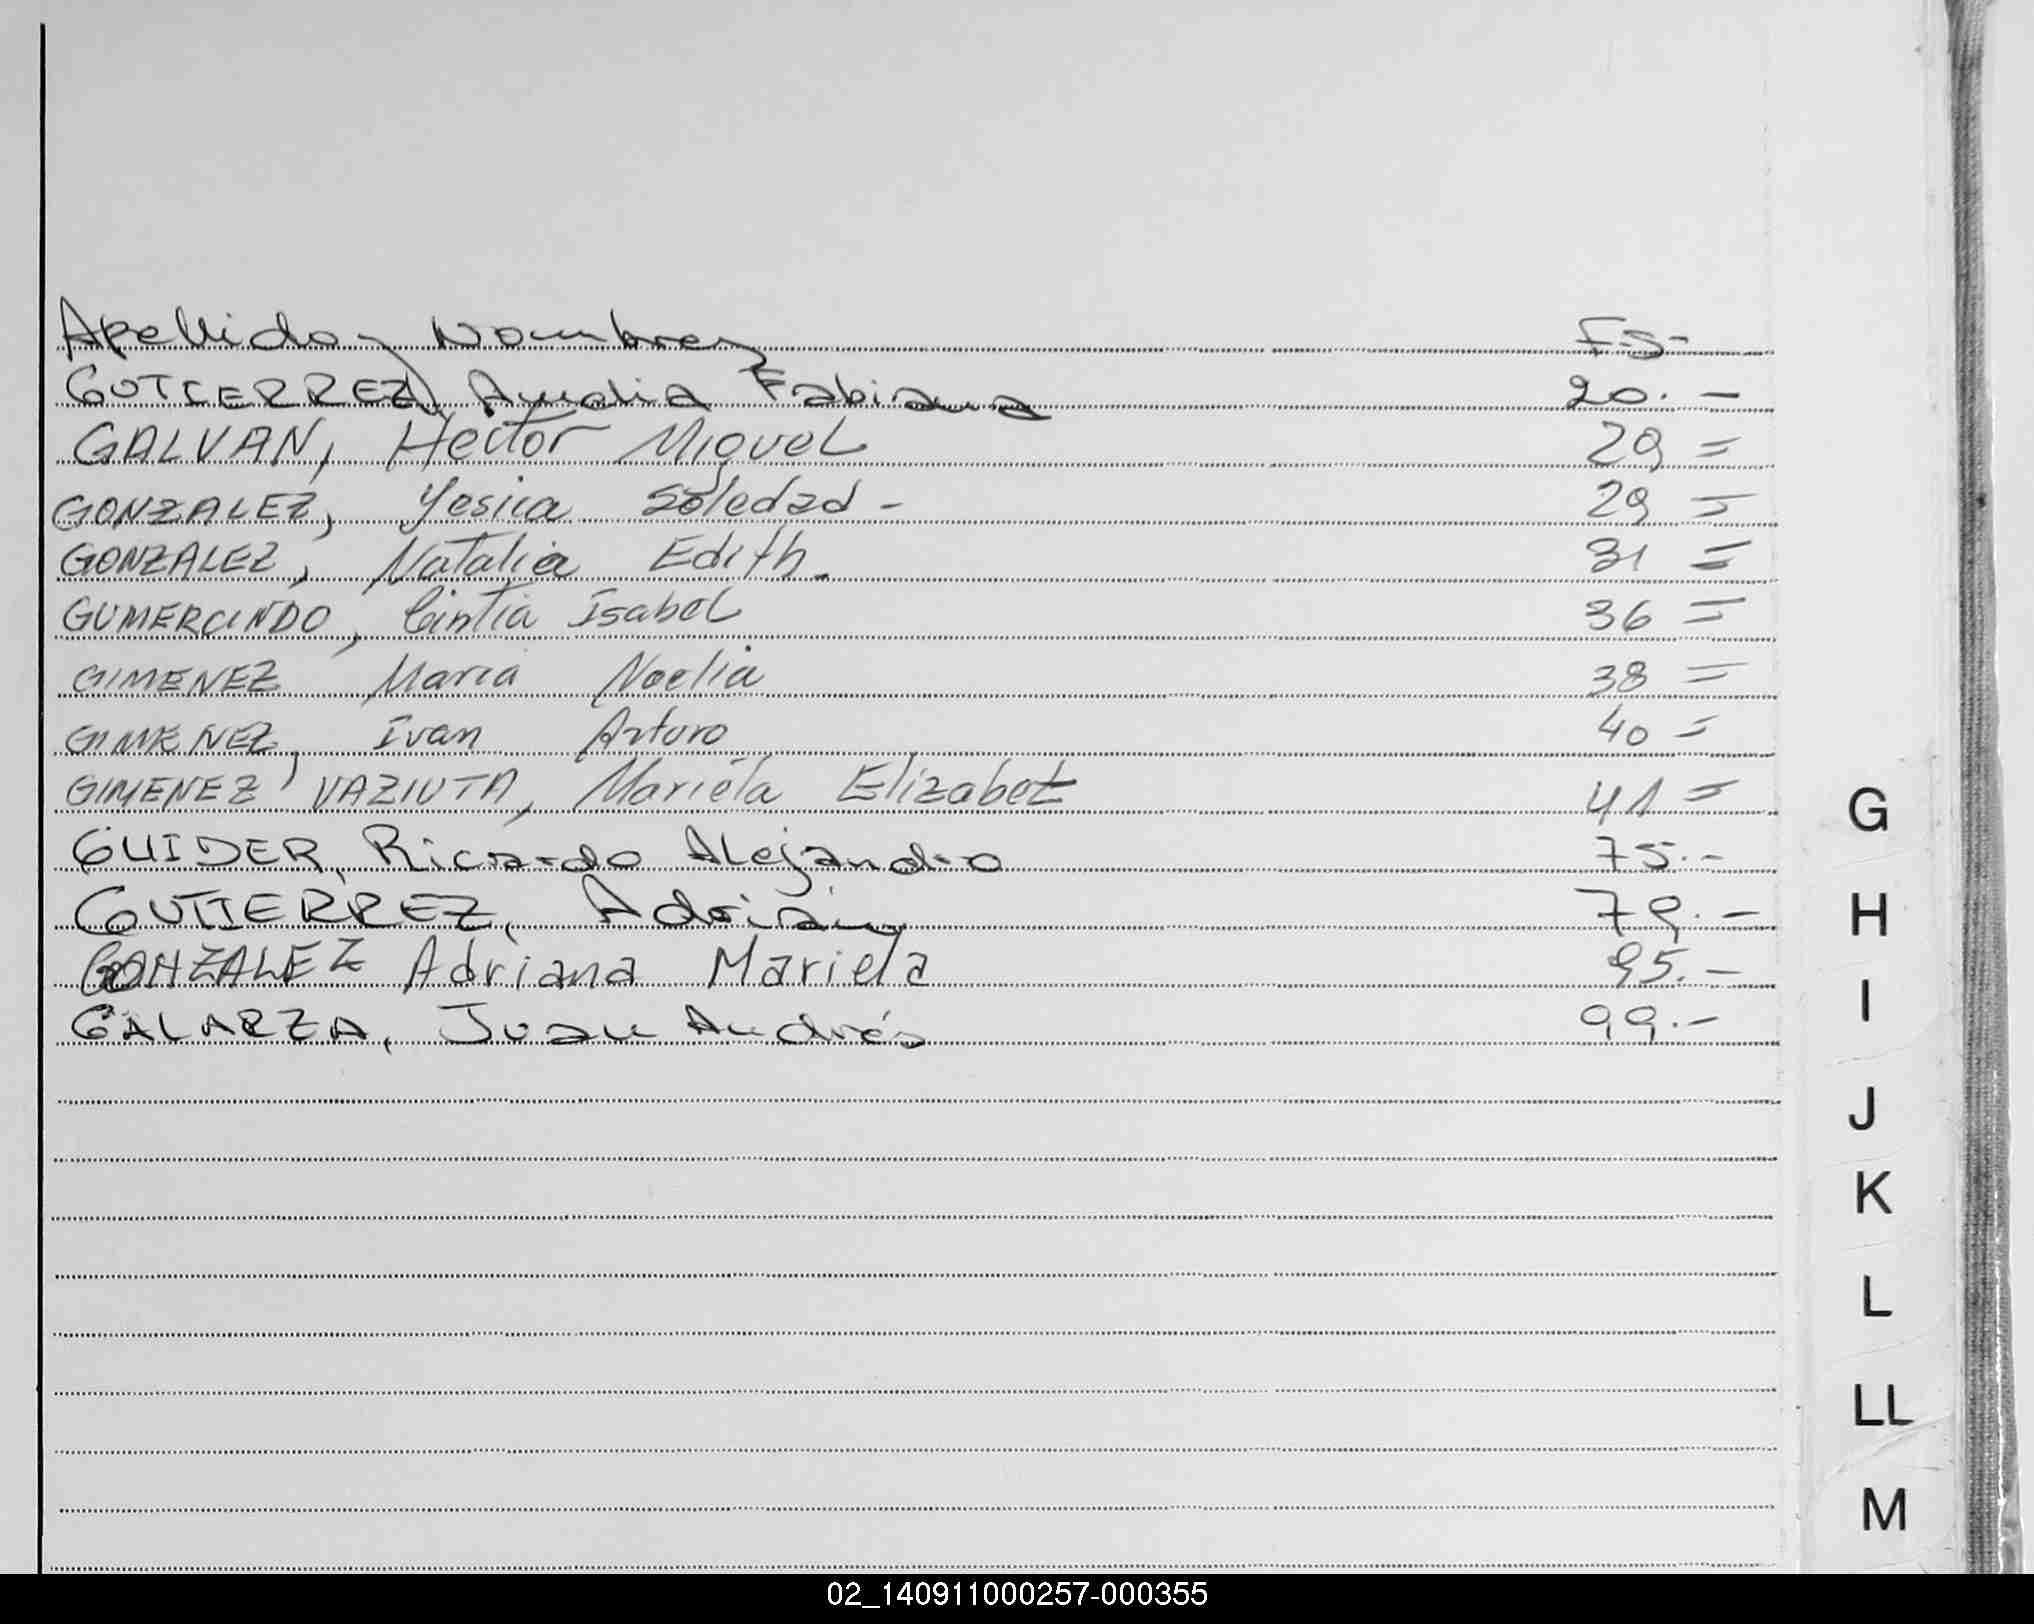 Apellido y Nombres Fs-
GUTIERREZ, Amalia Fabiana 20.-
GALVAN, Hector Miguel 29=
GONZALEZ, Yesica Soledad - 29=
GONZALEZ, Natalia Edith. 31=
GUMERCINDO, Cintia Isabel 36=
GIMENEZ Maria Noelia 38=
GIMENEZ, Ivan Arturo 40=
GIMENEZ VAZIUTA, Mariela Elizabet 41=
GUIDER, Ricardo Alejandro 75.-
GUTIERREZ, Adrián 79.-
GONZALEZ Adriana Mariela 95.-
GALARZA, Juan Andrés 99.-
G
H
I
J
K
L
LL
M
02_140911000257-000355